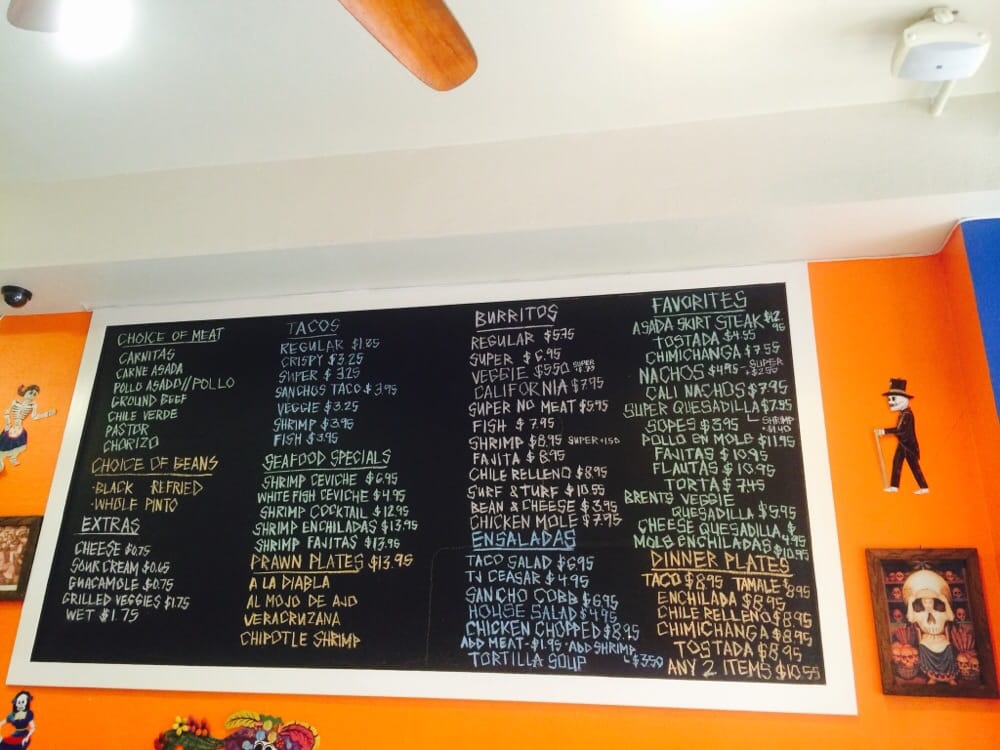 CHOICE OF MEAT
CARNITAS
CARNE ASADA
POLLO ASADO//POLLO
GROUND BEEF
CHILE VERDE
PASTOR
CHORIZO
CHOICE OF BEANS
·BLACK REFRIED
·WHOLE PINTO
EXTRAS
CHEESE $0.75
SOUR CREAM $0.65
GUACAMOLE $0.75
GRILLED VEGGIES $1.75
WET $1.75
TACOS
REGULAR
CRISPY $3.25
SUPER $3.25
SANCHOS TACO $3.95
VEGGIE $3.25
SHRIMP $3.95
FISH $3.95
SEAFOOD SPECIALS
SHRIMP CEVICHE $6.95
WHITE FISH CEVICHE $4.95
SHRIMP COCKTAIL $12.95
SHRIMP ENCHILADAS $13.95
SHRIMP FAJITAS $13.95
PRAWN PLATES $13.95
A LA DIABLA
AL MOJO DE AJO
VERACRUZANA
CHIPOTLE SHRIMP
BURRITOS
REGULAR $5.75
SUPER $6.95
VEGGIE $5.50 SUPER
CALIFORNIA $7.95
SUPER NO MEAT $5.95
FISH $7.95
SHRIMP $8.95 SUPER+1.50
FAJITA $8.95
CHILE RELLENO $8.95
SURF & TURF $10.55
BEAN & CHEESE $3.95
CHICKEN MOLE $7.95
ENSALADAS
TACO SALAD $6.95
TJ CEASAR $4.95
SANCHO COBB $6.95
HOUSE SALAD $4.95
CHICKEN CHOPPED $8.95
ADD MEAT-$1.95·ADD SHRIMP
TORTILLA SOUP $3.50
FAVORITES
ASADA SKIRT STEAK $12.95
TOSTADA $4.55
CHIMICHANGA $7.55
NACHOS $4.95 -SUPER +$2.50
CALI NACHOS $7.95
SUPER QUESADILLA $7.55
SOPES $3.95 SHRIMP +$1.40
POLLO EN MOLE $11.95
FAJITAS $10.95
FLAUTAS $10.95
TORTA $7.45
BRENTS VEGGIE
QUESADILLA $5.95
CHEESE QUESADILLA $4.95
MOLE ENCHILADAS $10.95
DINNER PLATES
TACO $8.95 TAMALE $8.95
ENCHILADA $8.95
CHILE RELLENO $8.95
CHIMICHANGA $8.95
TOSTADA $8.95
ANY 2 ITEMS $10.55